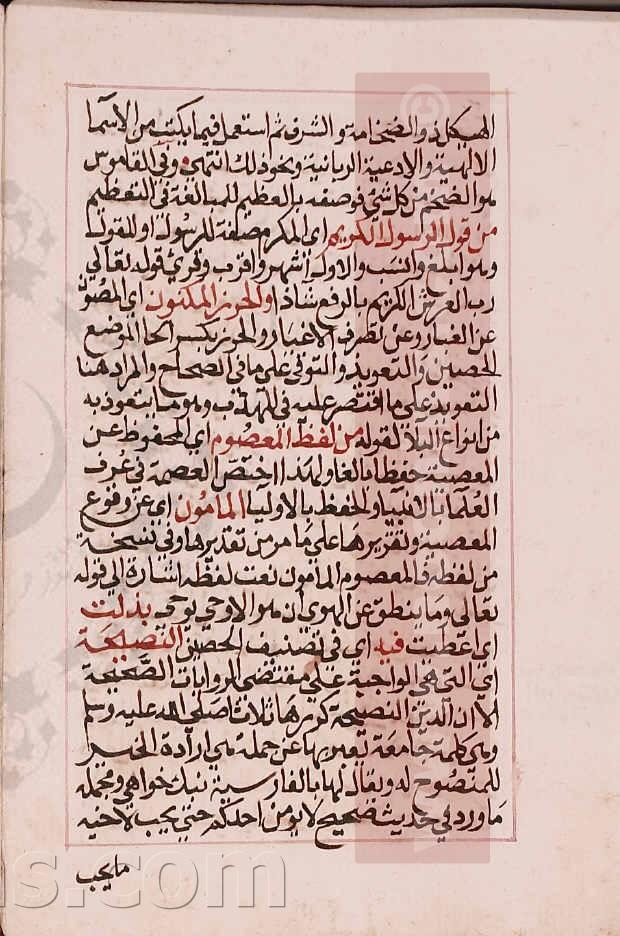 الهيكل ذو الضخامة والشرف ثم استعمل فيما يكتب من الاسما
الالهية والادعية الربانية ونحو ذلك انتهى وفي القاموس
هو الضخم من كل شئ فوصفه بالعظيم للمبالغة في التعظيم
من قول الرسول الكريم اي المكرم صفة للرسول او للقول
وهو ابلغ وانسب والاول اشهر واقرب وقرئ قوله تعالى
رب العرش الكريم بالرفع شاذا والحرز المكنون اي المصون
عن الغبار وعن تصرف الاغيار والحرز بكسر الحا الموضع
الحصين والتعويذ والتوقي على ما في الصحاح والمراد هنا
التعويذ على ما اقتصر عليه في المهذب وهو ما يتعوذ به
من انواع البلا لقوله من لفظ المعصوم اي المحفوظ عن
المعصية حفظا بالغا ولهذا اختص العصمة في عرف
العلما بالانبيا والحفظ بالاوليا المامون اي عن وقوع
المعصية وتقريرها على ما مر من تقديرها وفي نسخة
من لفظه فالمعصوم المامون نعت لفظه اشارة الى قوله
تعالى وما ينطق عن الهوى ان هو الا وحي يوحى بذلت
اي اعطيت فيه اي في تصنيف الحصين النصيحة
اي التي هي الواجبة على مقتضى الروايات الصحيحة
الا ان الدين النصيحة كررها ثلاثا صلى الله عليه وسلم
وهي كلمة جامعة يعبر بها عن جملة هي ارادة الخير
للمنصوح له ويقال لها بالفارسية نيك خواهي ومجمله
ما ورد في حديث صحيح لا يومن احدكم حتى يحب لاخيه
ما يحب
ns.com